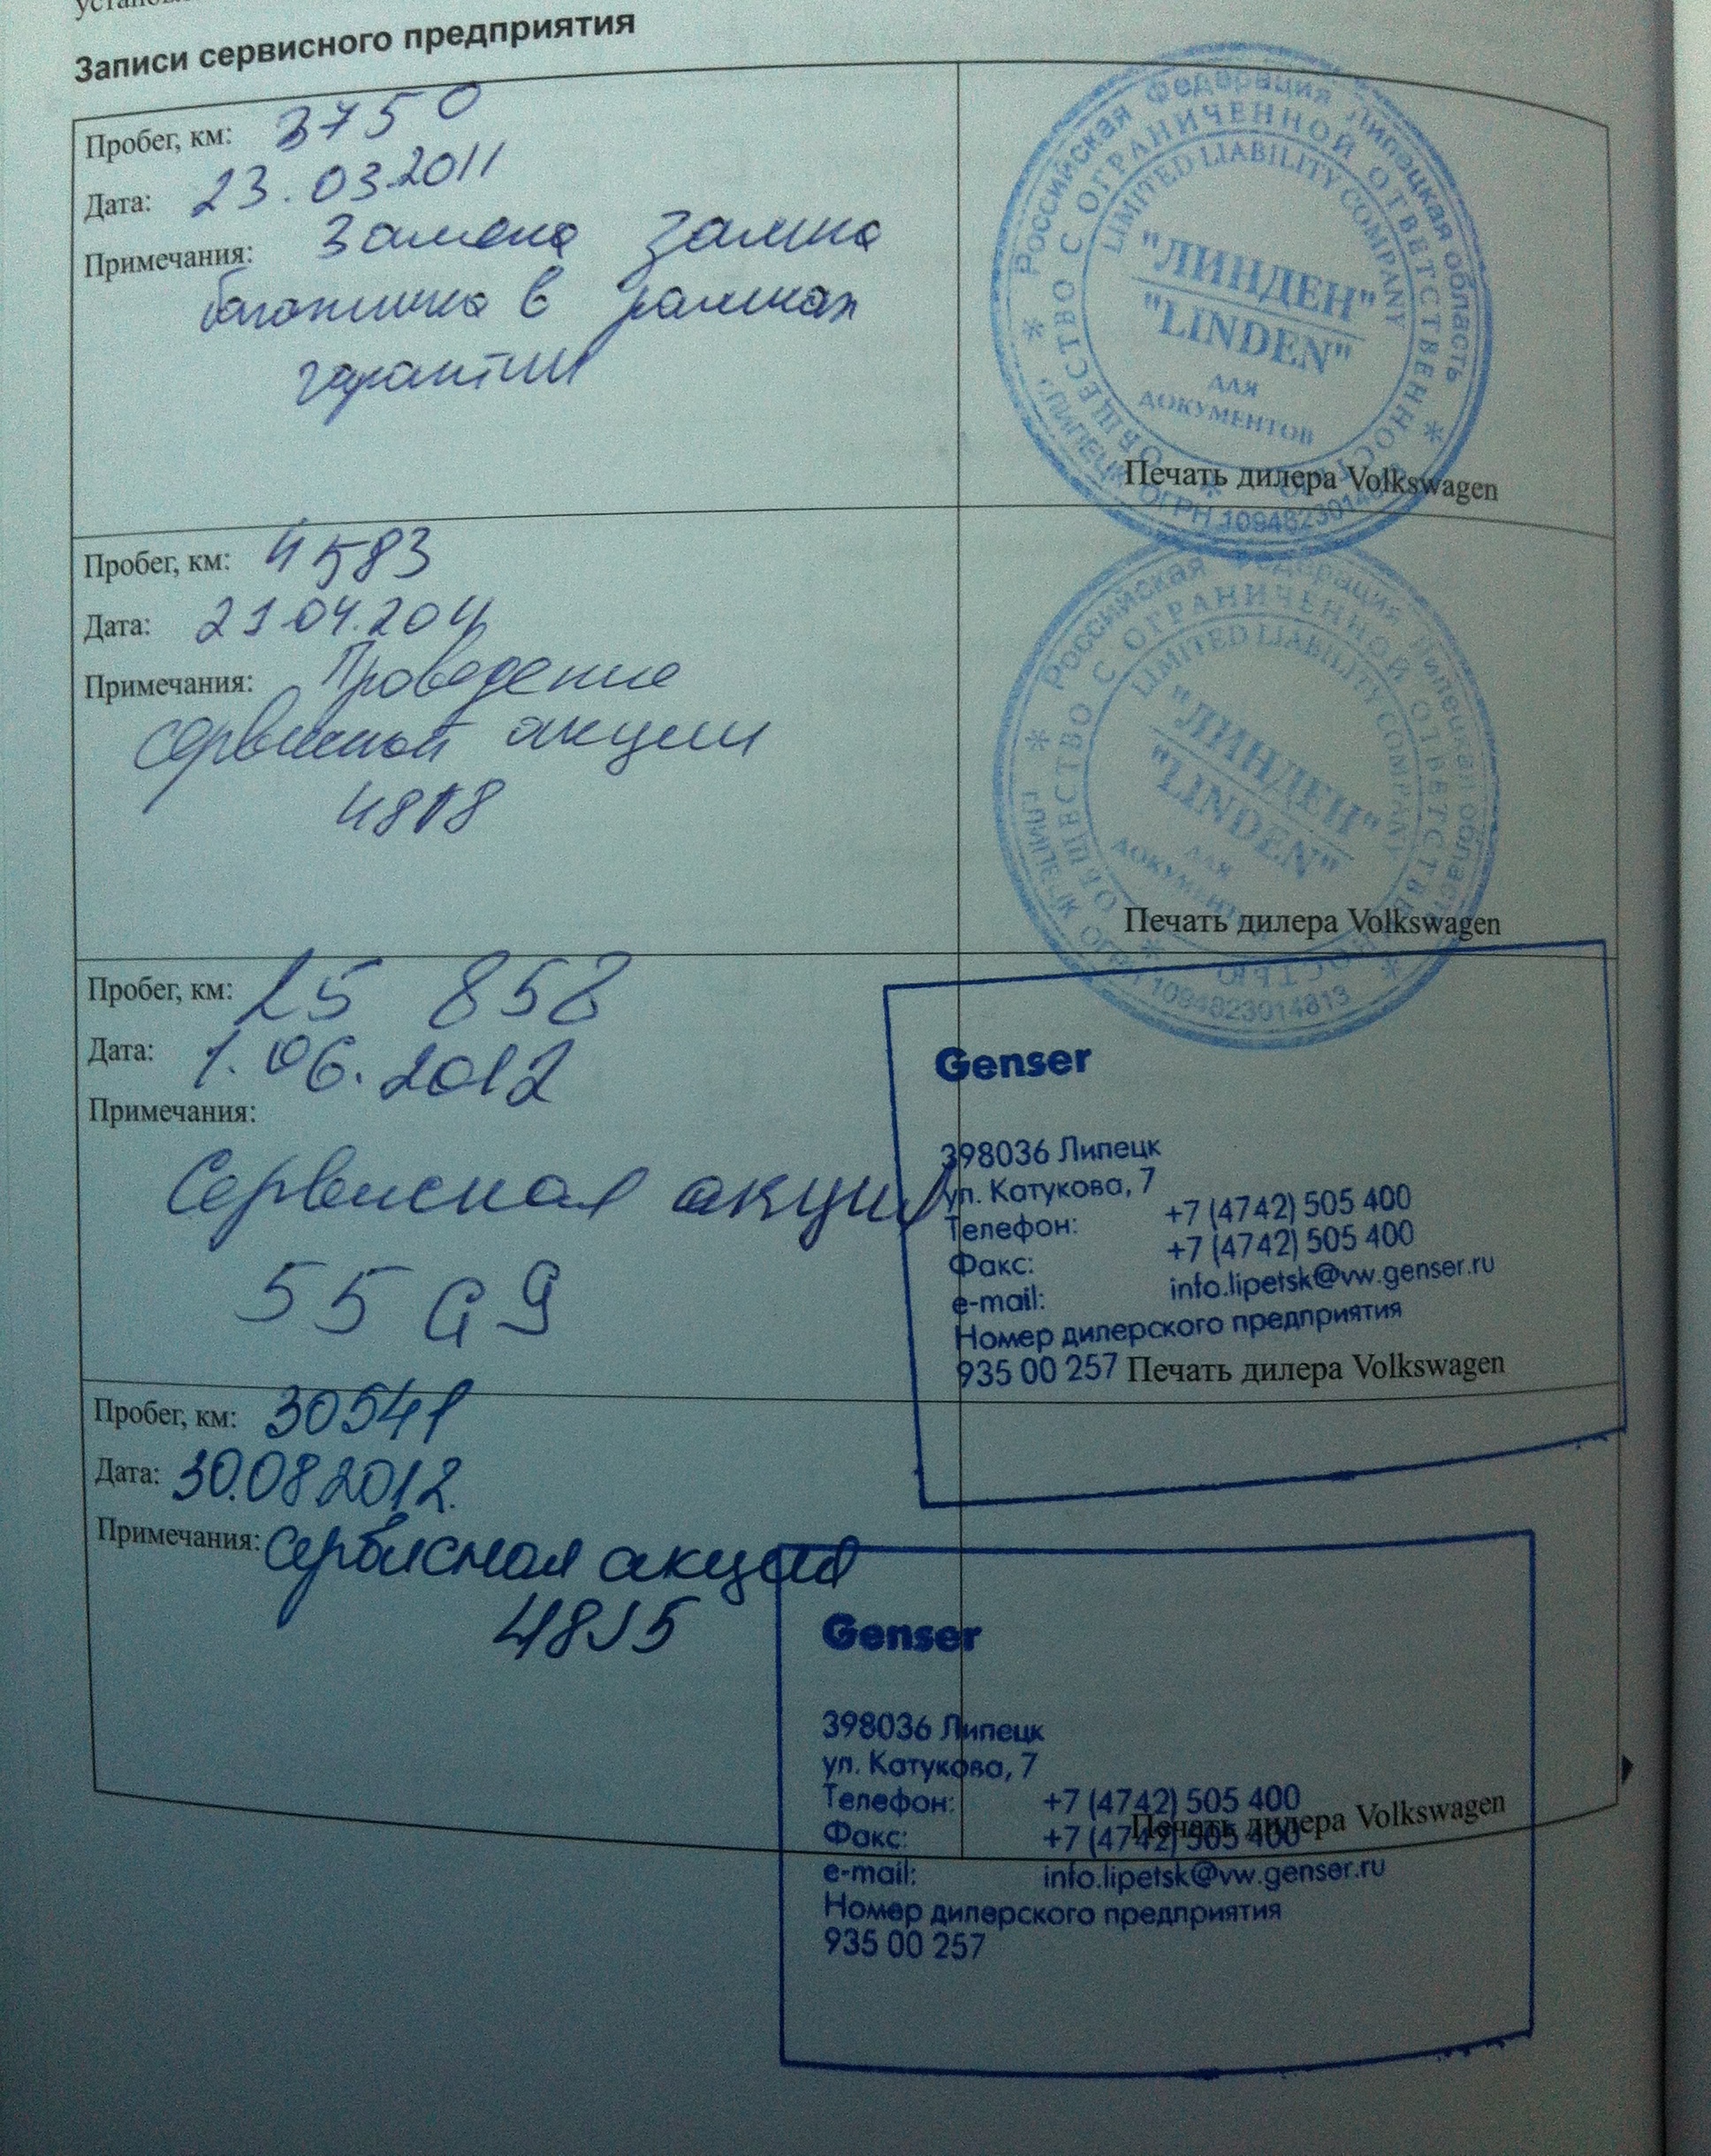 Записи сервисного предприятия
Пробег, км: 3750
Дата: 23.03.2011
Примечания: Замена замка
багажника в рамках
гарантии
Российская Федерация Липецкая область
ОБЩЕСТВО С ОГРАНИЧЕННОЙ ОТВЕТСТВЕННОСТЬЮ
LIMITED LIABILITY COMPANY
"ЛИНДЕН"
"LINDEN"
ДЛЯ
ДОКУМЕНТОВ
г.ЛИПЕЦК ОГРН
Печать дилера Volkswagen
Пробег, км: 4583
Дата: 21.04.2011
Примечания: Проведение
сервисной акции
Российская Федерация Липецкая область
ОБЩЕСТВО С ОГРАНИЧЕННОЙ ОТВЕТСТВЕННОСТЬЮ
LIMITED LIABILITY COMPANY
"ЛИНДЕН"
"LINDEN"
ДЛЯ
ДОКУМЕНТОВ
г.ЛИПЕЦК ОГРН 1094823014813
Печать дилера Volkswagen
Пробег, км: 25 858
Дата: 1.06.2012
Примечания:
Сервисная акция
55G9
Genser
398036 Липецк
ул. Катукова, 7
Телефон: +7 (4742) 505 400
Факс: +7 (4742) 505 400
e-mail: info.lipetsk@vw.genser.ru
Номер дилерского предприятия
935 00 257 Печать дилера Volkswagen
Пробег, км: 30541
Дата: 30.08.2012.
Примечания: Сервисная акция
48J5
Genser
398036 Липецк
ул. Катукова, 7
Телефон: +7 (4742) 505 400
Печать дилера Volkswagen
Факс: +7 (4742) 505 400
e-mail: info.lipetsk@vw.genser.ru
Номер дилерского предприятия
935 00 257